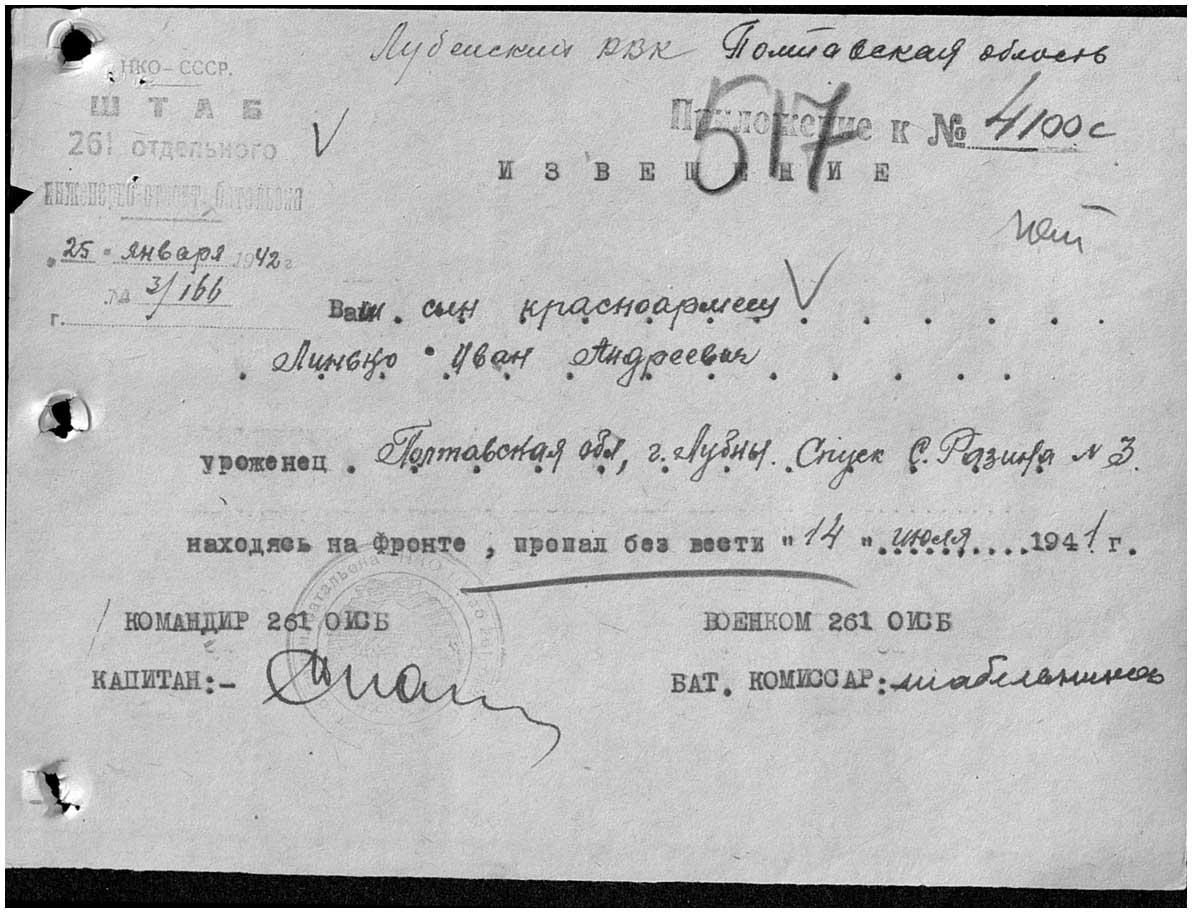 Лубенский РВК Полтавская область
НКО-СССР.
ШТАБ
261 отдельного
инженерно-строит. батальона
"25" января 1942 г
№ 3/166
г.
Приложение к № 4100с
517
ИЗВЕЩЕНИЕ
Ваш. сын красноармеец
Линько Иван Андреевич
уроженец. Полтавская обл, г. Лубны. Спуск С. Разина № 3.
находясь на фронте, пропал без вести "14" июля 1941 г.
КОМАНДИР 261 ОИСБ
ВОЕНКОМ 261 ОИСБ
КАПИТАН:-
БАТ. КОМИССАР: